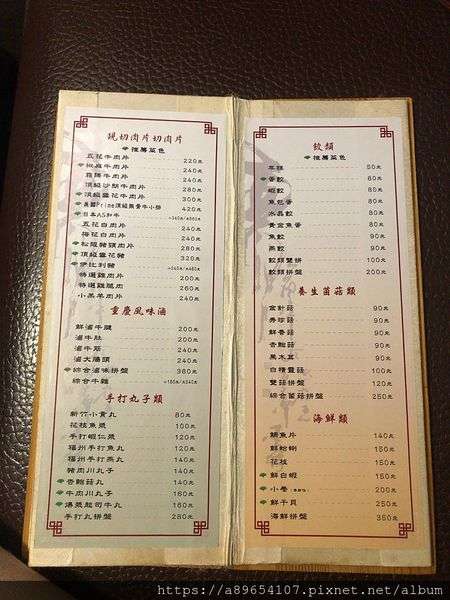 現切肉片切肉片
推薦菜色
五花牛肉片 220元
板腱牛肉片 240元
霜降牛肉片 240元
頂級沙朗牛肉片 280元
頂級雪花牛肉片 300元
美國Prime頂級無骨牛小排 420元
日本A5和牛
五花白肉片 240元
梅花白肉片 240元
松阪豬頸肉片 280元
頂級雪花豬 320元
伊比利豬
特選雞肉片 240元
特選雞腿肉 260元
小羔羊肉片 240元
重慶風味滷
鮮滷牛腱 200元
滷牛肚 200元
滷牛筋 240元
滷大腸頭 240元
綜合滷味拼盤 380元
綜合牛雜
手打丸子類
新竹小貢丸 80元
花枝魚漿 100元
手打蝦仁漿 120元
福州手打魚丸 120元
福州手打燕丸 140元
豬肉川丸子 140元
香鮑菇丸 140元
牛肉川丸子 160元
爆漿起司牛丸 160元
手打丸拼盤 280元
餃類
推薦菜色
年糕 50元
蛋餃 80元
蝦餃 80元
魚包蛋 80元
水晶餃 80元
黃金魚蛋 80元
魚餃 90元
燕餃 90元
餃類雙拼 100元
餃類拼盤 200元
養生菌菇類
金針菇 90元
秀珍菇 90元
鮮香菇 90元
杏鮑菇 90元
黑木耳 90元
白精靈菇 100元
雙菇拼盤 120元
綜合菌菇拼盤 250元
海鮮類
鯛魚片 140元
鮮蛤蜊 150元
花枝 150元
鮮白蝦 150元
小卷 200元
鮮干貝 200元
海鮮拼盤 350元
https://a89654107.pixnet.net/album